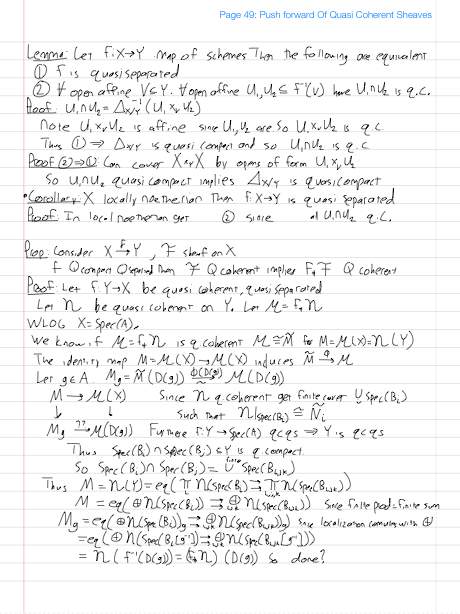 Page 49: Push forward Of Quasi Coherent Sheaves
Lemma: Let f:X→Y map of schemes Then the following are equivalent
① f is quasiseparated
② ∀ open affine V⊆Y. ∀ open affine U₁,U₂ ⊆ f⁻¹(V) have U₁∩U₂ is q.c.
Proof: U₁∩U₂ = Δ_{X/Y}⁻¹(U₁ ×_V U₂)
Note U₁ ×_V U₂ is affine since U₁,U₂ are. So U₁ ×_V U₂ is q.c.
Thus ① ⇒ Δ_{X/Y} is quasi compact and so U₁∩U₂ is q.c.
Proof ②⇒①: Can cover X×_Y X by opens of form U₁ ×_V U₂
So U₁∩U₂ quasi compact implies Δ_{X/Y} is quasicompact
• Corollary: X locally noetherian Then f:X→Y is quasi separated
Proof: In local noetherian get ② since all U₁∩U₂ q.c.
Prop: Consider X →^f Y, F sheaf on X
f Q compact Q separated then F Q coherent implies f_* F Q coherent
Proof: Let f: Y→X be quasi coherent, quasi separated
Let N be quasi coherent on Y. Let M = f_* N
WLOG X = Spec(A).
We know if M = f_* N is q. coherent M ≅ M̃ for M = M(X) = N(Y)
The identity map M = M(X) → M(X) induces M̃ →^φ M
Let g∈A. M_g = M̃(D(g)) →^{φ(D(g))} M(D(g))
M → M(X) Since N q coherent get finite cover ∪ Spec(B_i)
↓ ↓ such that N|_{Spec(B_i)} ≅ Ñ_i
M_g →^{??} M(D(g)) Furthermore f:Y→Spec(A) qcqs ⇒ Y is qcqs
Thus Spec(B_i) ∩ Spec(B_j) ⊆ Y is q compact.
So Spec(B_i) ∩ Spec(B_j) = ∪^{finite} Spec(B_{ijk})
Thus M = N(Y) = eq(∏ N(Spec(B_i)) ⇉ ∏_{ijk} N(Spec(B_{ijk})))
M = eq(⊕ N(Spec(B_i)) ⇉ ⊕_{ijk} N(Spec(B_{ijk}))) Since finite prod = finite sum
M_g = eq(⊕ N(Spec(B_i))_g ⇉ ⊕_{ijk} N(Spec(B_{ijk}))_g) since localization commutes with ⊕
= eq(⊕ N(Spec(B_i[g⁻¹])) ⇉ ⊕_{ijk} N(Spec(B_{ijk}[g⁻¹])))
= N(f⁻¹(D(g))) = (f_* N)(D(g)) so done?